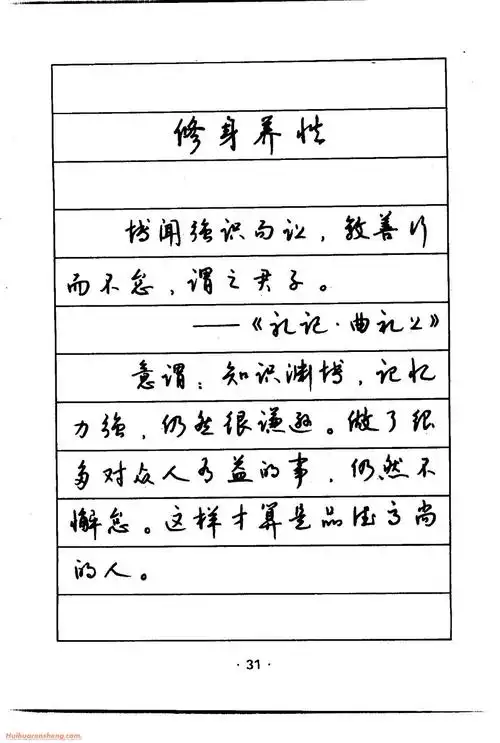 修身养性
博闻强识而让，敦善行
而不怠，谓之君子。
——《礼记·曲礼上》
意谓：知识渊博，记忆
力强，仍然很谦逊。做了很
多对众人有益的事，仍然不
懈怠。这样才算是品德高尚
的人。
· 31 ·
Huihuaransheng.com